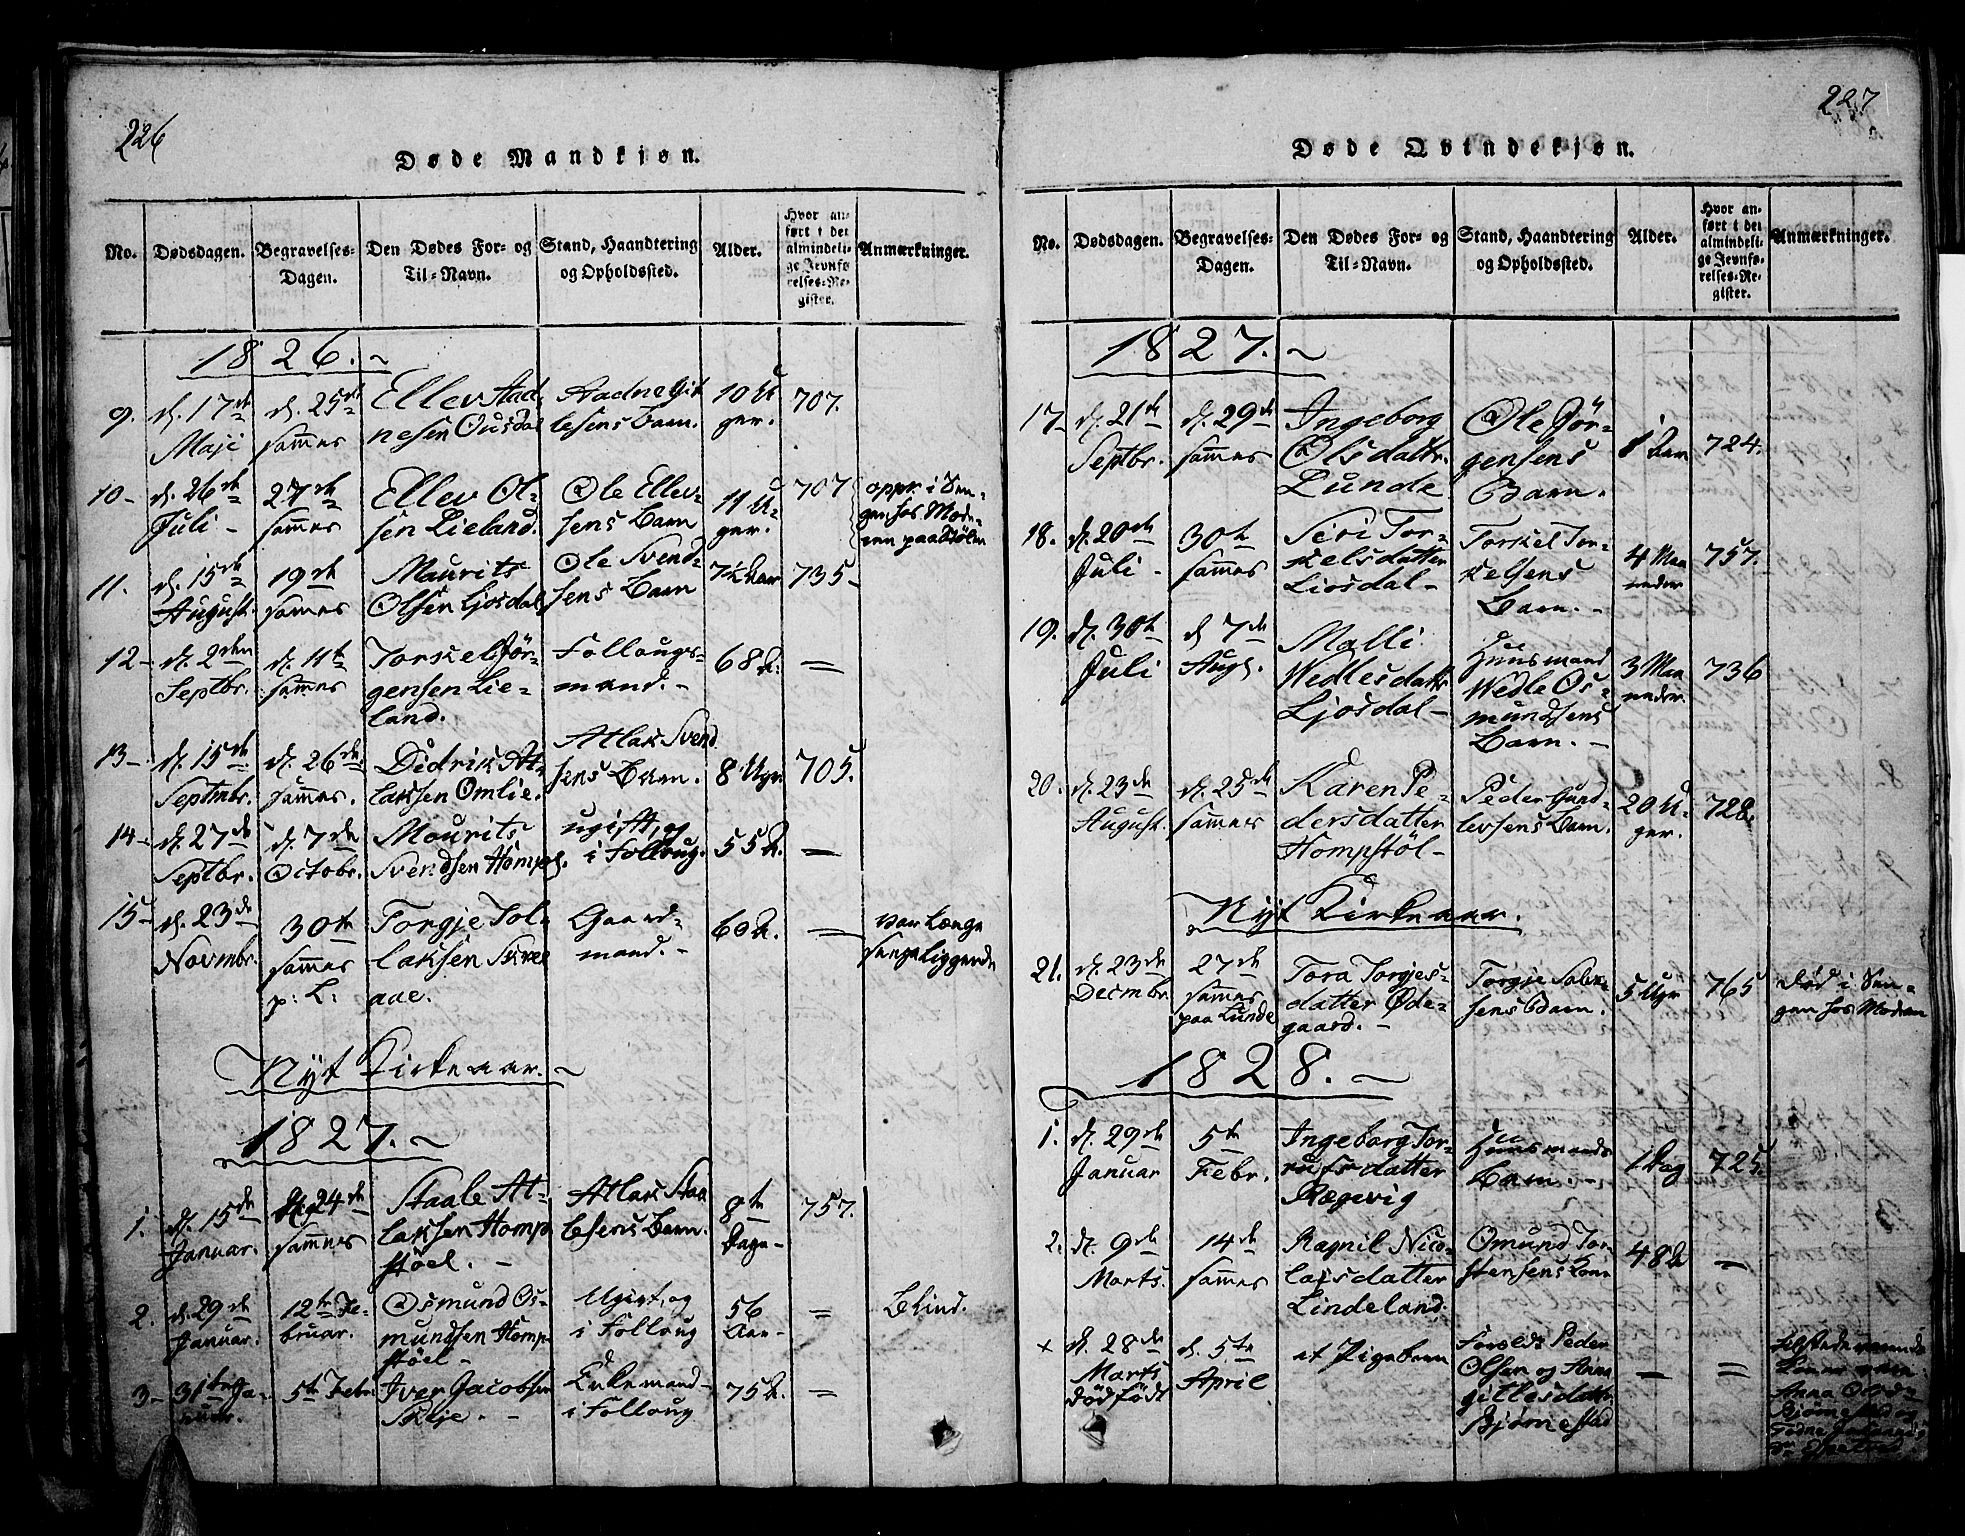 226
Døde Mandkjøn.
No. Dødsdagen. Begravelses-Dagen. Den Dødes For- og Til-Navn. Stand, Haandtering og Opholdssted. Alder. Hvor anført i det almindelige Jevnførelses-Register. Anmærkninger.
1826.
9. d. 17de Maji d. 25de sammes Ellev Aadnesen Ousdal Aadne Gitlesens Barn 10 Uger. 707.
10 d. 26de Juli 27de sammes Ellev Olsen Lieland. Ole Ellevsens Barn 11 Uger. 707 oppr i Sengen hos Moderen paa Stölen
11. d. 15de August. 19de sammes Maurits Olsen Ljosdal Ole Svendsens Barn 7½ Aar 735
12 d. 2den Septbr. d. 11te sammes Torkel Jörgensen Lieland. Follougsmand. 68 A. =
13 d. 15de Septmbr. d. 26de sammes. Didrik Atlaksen Omlie. Atlak Svendsens Barn. 8 Ugr 705.
14 d. 27de Septbr. d. 7de Octobr. Mourits Svendsen Homps. ugift, og i Folloug. 55 A. =
15 d. 23de Novmbr. 30te sammes p: L: Torgje Tollaksen Skreaae. Gaardmand. 60 A. = var længe sengeliggende
Nyt Kirkeaar.
1827.
1. d. 15de Januar. d. 24de sammes Staale Atlaksen Hompstöel. Atlak Staalesens Barn. 8te Dage 757.
2. d. 29de Januar. 12te Februar. Osmund Osmundsen Hompstöel Ugivt, og i Folloug 56 Aar = Blind.
3 31te Januar. 5te Febr. Iver Jacobsen Skeje. Enkemand i Folloug 75 A. =
227
Døde Qvindekjøn.
No. Dødsdagen. Begravelses-Dagen. Den Dødes For- og Til-Navn. Stand, Haandtering og Opholdssted. Alder. Hvor anført i det almindelige Jevnførelses-Register. Anmærkninger.
1827.
17 d. 21de Septbr. d. 29de sammes Ingeborg Olsdattr. Lunde Ole Jörgensens Barn. 1 Aar 724.
18. d. 20de Juli 30te sammes Siri Torkelsdatter Liosdal Torkel Torkelsens Barn. 4 Maaneder 757.
19. d. 30te Juli d 7de Augs. Malli Wedlesdattr Ljosdal Huusmand Wedle Osmundsens Barn. 3 Maaneder. 736
20. d. 23de August. d. 25de sammes Karen Pedersdatter Hompstöl Peder Gundlevsens Barn. 20 Uger. 728.
Nyt Kirkeaar.
21. d. 23de Decmbr 27de sammes paa Lunde Tora Torgjesdatter Ödegaard. Torgje Salvesens Barn. 5 Ugr 765 död i Sengen hos Moderen
1828.
1. d. 29de Januar 5te Febr. Ingeborg Torrufsdatter Rægevig Huusmands Barn. 1 Dag 725.
2. d. 9de Marts. 14de sammes Ragnil Nicolaisdatter Lindeland. Omund Torstensens Kone 48 A =
x d. 28de Marts dödfödt d. 5te April et Pigebarn Foreldr Peder Olsen og Anne Gitlesdattr Björnestad — = Tilstedeværende Anna Olsdr Björnestad og